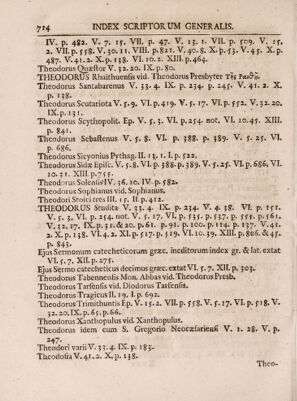 714 INDEX SCRIPTORUM GENERALIS.
IV. p. 482. V. 7. 15. VII. p. 47. V. 13. 1. VII. p. 509. V. 15.
2. VII. p. 558. V. 30. 11. VIII. p. 821. V. 40. 8. X. p. 53. V. 45. X. p.
487. V. 41. 2. X. p. 138. VI. 10. 2. XIII. p. 464.
Theodorus Quæstor V. 32. 20. IX. p. 80.
THEODORUS Rhaithuensis vid. Theodorus Presbyter τῆς ῥαιθῦ.
Theodorus Santabarenus V. 33. 4. IX. p. 234. p. 245. V. 41. 2. X.
p. 138.
Theodorus Scutariota V. 5. 9. VI. p. 419. V. 5. 17. VI. p. 552. V. 32. 20.
IX. p. 131.
Theodorus Scythopolit. Ep. V. 5. 3. VI. p. 254. not. VI. 10. 45. XIII.
p. 841.
Theodorus Sebastenus V. 5. 8. VI. p. 388. p. 389. V. 5. 25. VI.
p. 686.
Theodorus Sicyonius Pythag. II. 13. 1. I. p. 522.
Theodorus Sidæ Episc. V. 5. 8. VI. p. 388. p. 389. V. 5. 25. VI. p. 686. VI.
10. 31. XIII. p. 755.
Theodorus Solensis IV. 36. 10. IV. p. 582.
Theodorus Sophianus vid. Sophianus.
Theodori Stoici tres III. 15. II. p. 412.
THEODORUS Studita V. 33. 4. IX. p. 234. V. 4. 38. VI. p. 151.
V. 5. 3. VI. p. 254. not. V. 5. 17. VI. p. 535. p. 537. p. 555. p. 561.
V. 32. 17. IX. p. 31. & 20. p. 61. p. 91. p. 100. p. 114. p. 137. V. 41.
2. X. p. 138. VI. 4. 2. XI. p. 517. p. 519. VI. 10. 39. XIII. p. 806. & 45.
p. 843.
Ejus Sermonum catecheticorum græc. ineditorum index gr. & lat. extat
VI. 5. 7. XII. p. 275.
Ejus Sermo catecheticus decimus græc. extat VI. 5. 7. XII. p. 303.
Theodorus Tabennensis Mon. Abbas vid. Theodorus Presb.
Theodorus Tarsensis vid. Diodorus Tarsensis.
Theodorus Tragicus II. 19. I. p. 692.
Theodorus Trimithuntis Ep. V. 15. 2. VII. p. 558. V. 5. 17. VI. p. 518. V.
32. 20. IX. p. 65. p. 66.
Theodorus Xanthopulus vid. Xanthopulus.
Theodorus idem cum S. Gregorio Neocæsariensi V. 1. 28. V. p.
247.
Theodori varii V. 33. 4. IX. p. 183.
Theodosia V. 41. 2. X. p. 138.
Theo-